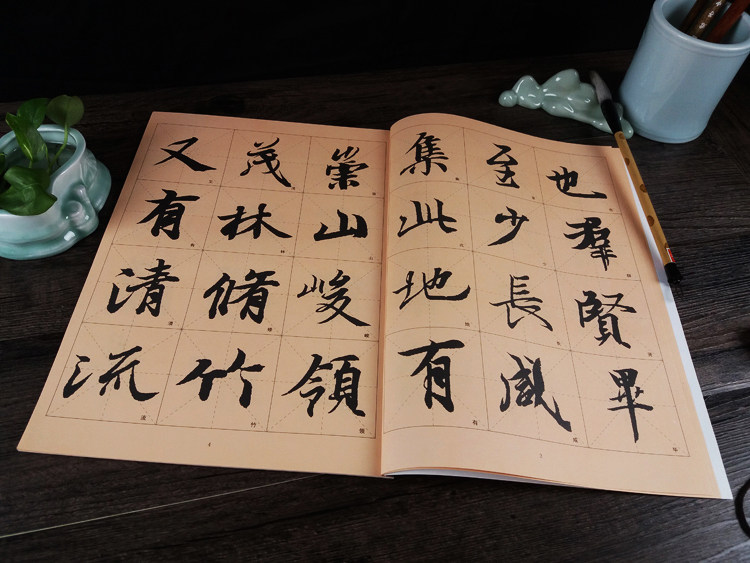 也羣賢畢
至少長咸
集此地有
崇山峻領
茂林脩竹
又有清流